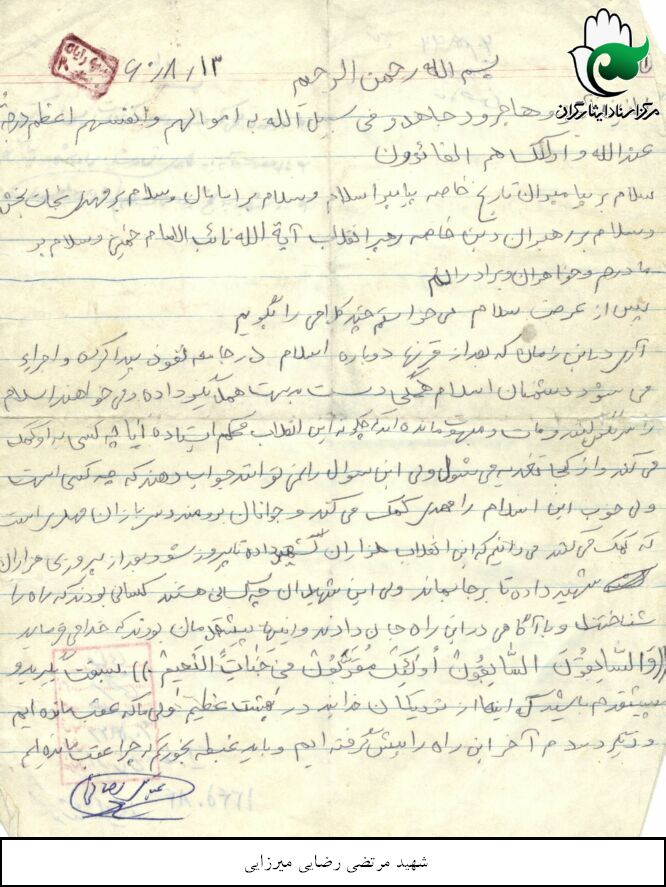 بسم الله رحمن الرحیم
۶۰/۸/۱۳
مرکز اسناد ایثارگران
و هاجرو و جاهدو فی سبیل الله به اموالهم وانفسهم اعظم درجه
عندالله و اولئک هم الفائزون
سلام بر پیامبران تاریخ خاصه پیامبر اسلام وسلام بر امامان وسلام بر مهدی نجات بخش
وسلام بر رهبران دین خاصه رهبر انقلاب آیة الله نائب الامام خمینی وسلام بر
مادرم وخواهران وبرادرانم
پس از عرض سلام می خواستم چند کلامی را بگویم
آری در این زمان که بعد از قرنها دوباره اسلام در جامعه نفوذ پیدا کرده و اجراء
می شود دشمنان اسلام همگی دست به دست همدیگر داده و می خواهند اسلام
را سرنگون کنند و مات و مبهوت مانده اند که چگونه این انقلاب محکم ایستاده آیا چه کسی به او کمک
می کند و از کجا تغذیه می شود ولی این سوال را نمی توانند جواب دهند که چه کسی است
ولی خوب این اسلام را مهدی کمک می کند و جوانان برومند و سربازان مهدی است
که کمک می کنند می دانیم که این انقلاب هزاران شهید داده تا پیروز شود و بعد از پیروزی هزاران
شهید داده تا برجا بماند ولی این شهیدان چه کسانی هستند کسانی بودند که راه را
شناختند و با آگاهی در این راه جان دادند و اینها پیشقدمان بودند که خدا می فرماید
((وَالسّابِقونَ السّابِقُونَ أُولئِکَ مُقَرَّبُونَ فی جَنّاتِ النَّعیم)) سبقت بگیرید و
پیشقدم باشید که اینها از نزدیکان خدایند در بهشت عظیم ولی ما که عقب مانده ایم
و دیگر مردم آخر این راه را پیش گرفته ایم و باید غبطه بخوریم که چرا عقب مانده ایم
شهید مرتضی رضایی میرزایی